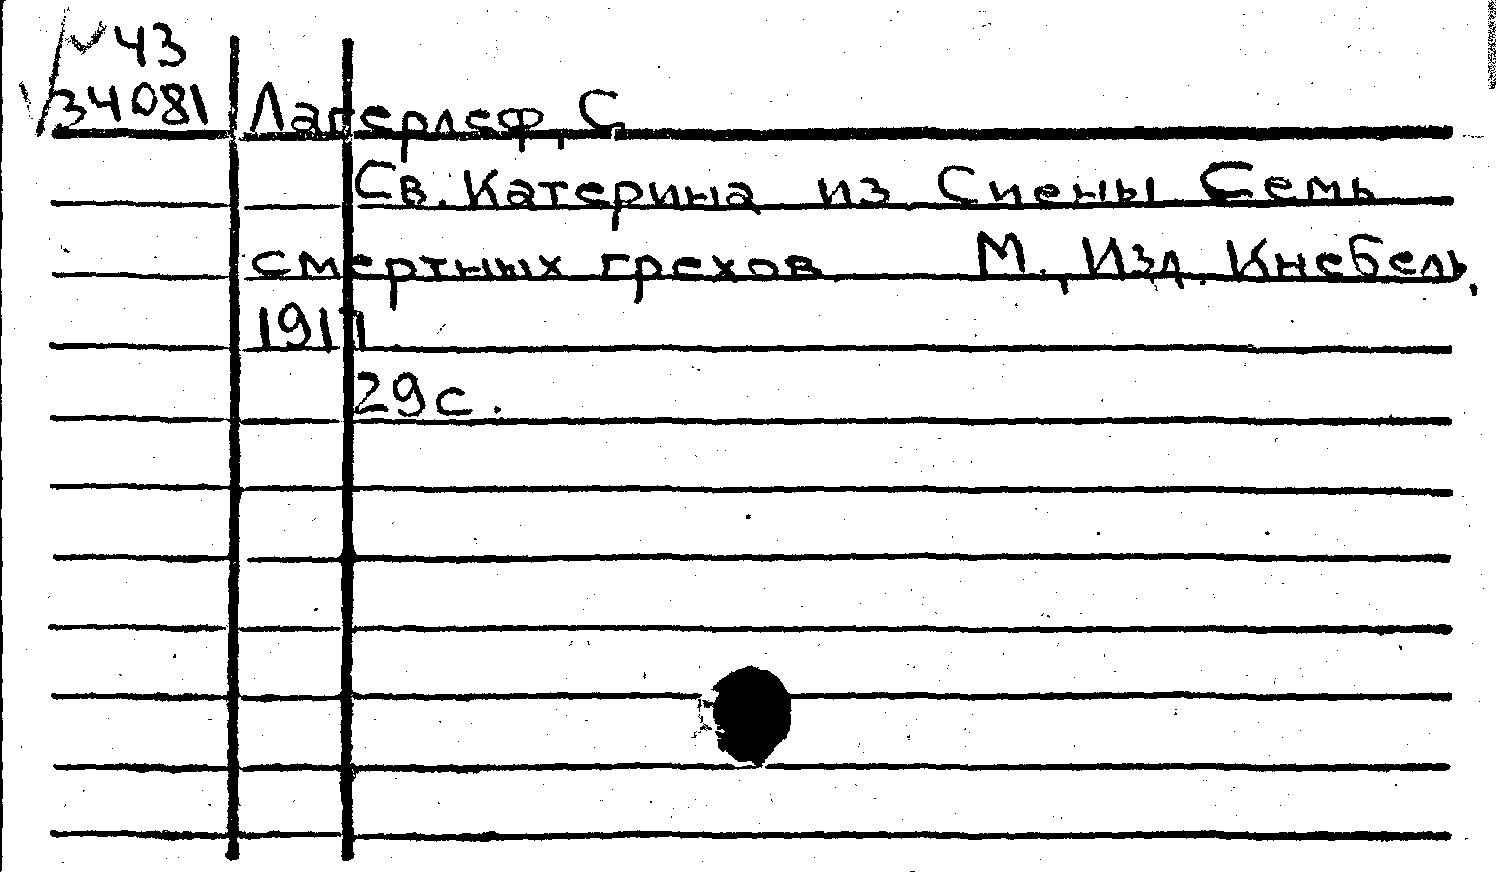 V 43
34081 Лагерлеф, С
Св. Катерина из Сиены. Семь
смертных грехов М., Изд. Кнебель,
1911.
29 с.